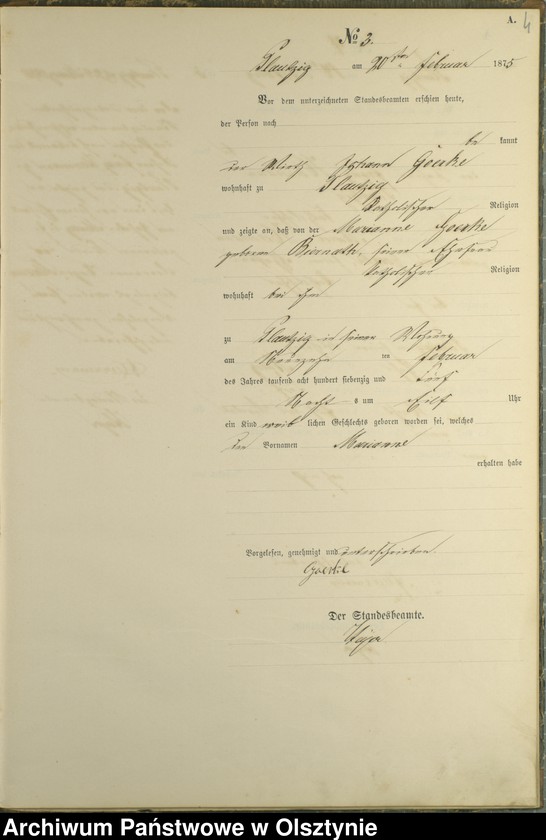 A. 4
No 3.
Plautzig am 20ten Februar 1875
Vor dem unterzeichneten Standesbeamten erschien heute,
der Person nach
be kannt
der Wirth Johann Goerke
wohnhaft zu Plautzig
katholischer Religion
und zeigte an, daß von der Marianne Goerke
geboren Biernath, seiner Ehefrau
katholischer Religion
wohnhaft bei ihm
zu Plautzig in seiner Wohnung
am Neunzehn ten Februar
des Jahres tausend acht hundert siebenzig und fünf
Nacht s um Eilf Uhr
ein Kind weib lichen Geschlechts geboren worden sei, welches
den Vornamen Marianne
erhalten habe
Vorgelesen, genehmigt und unterschrieben.
Goerke
Der Standesbeamte.
Archiwum Państwowe w Olsztynie